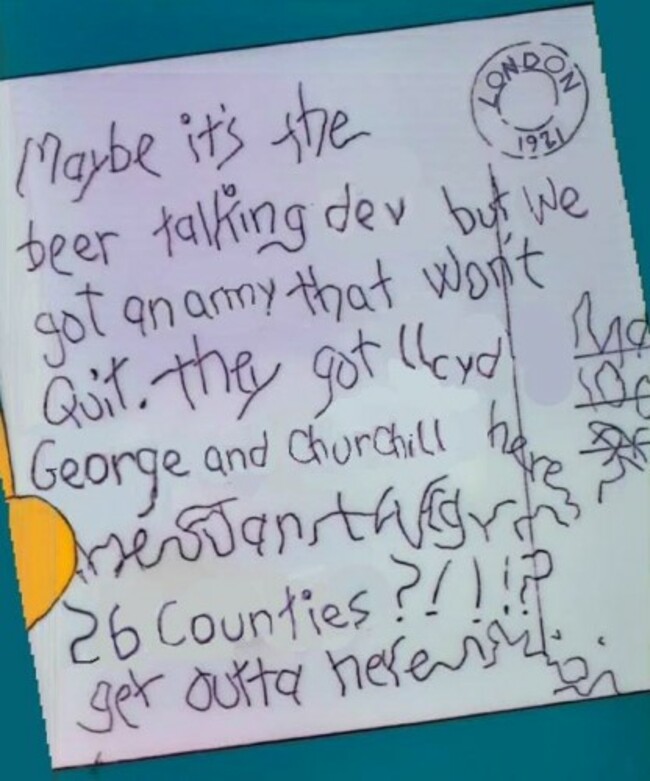 LONDON
1921
Maybe it's the
beer talking dev but We
got an army that won't
Quit. they got llcyd
George and Churchill here
26 Counties ?/!!?
get outta here